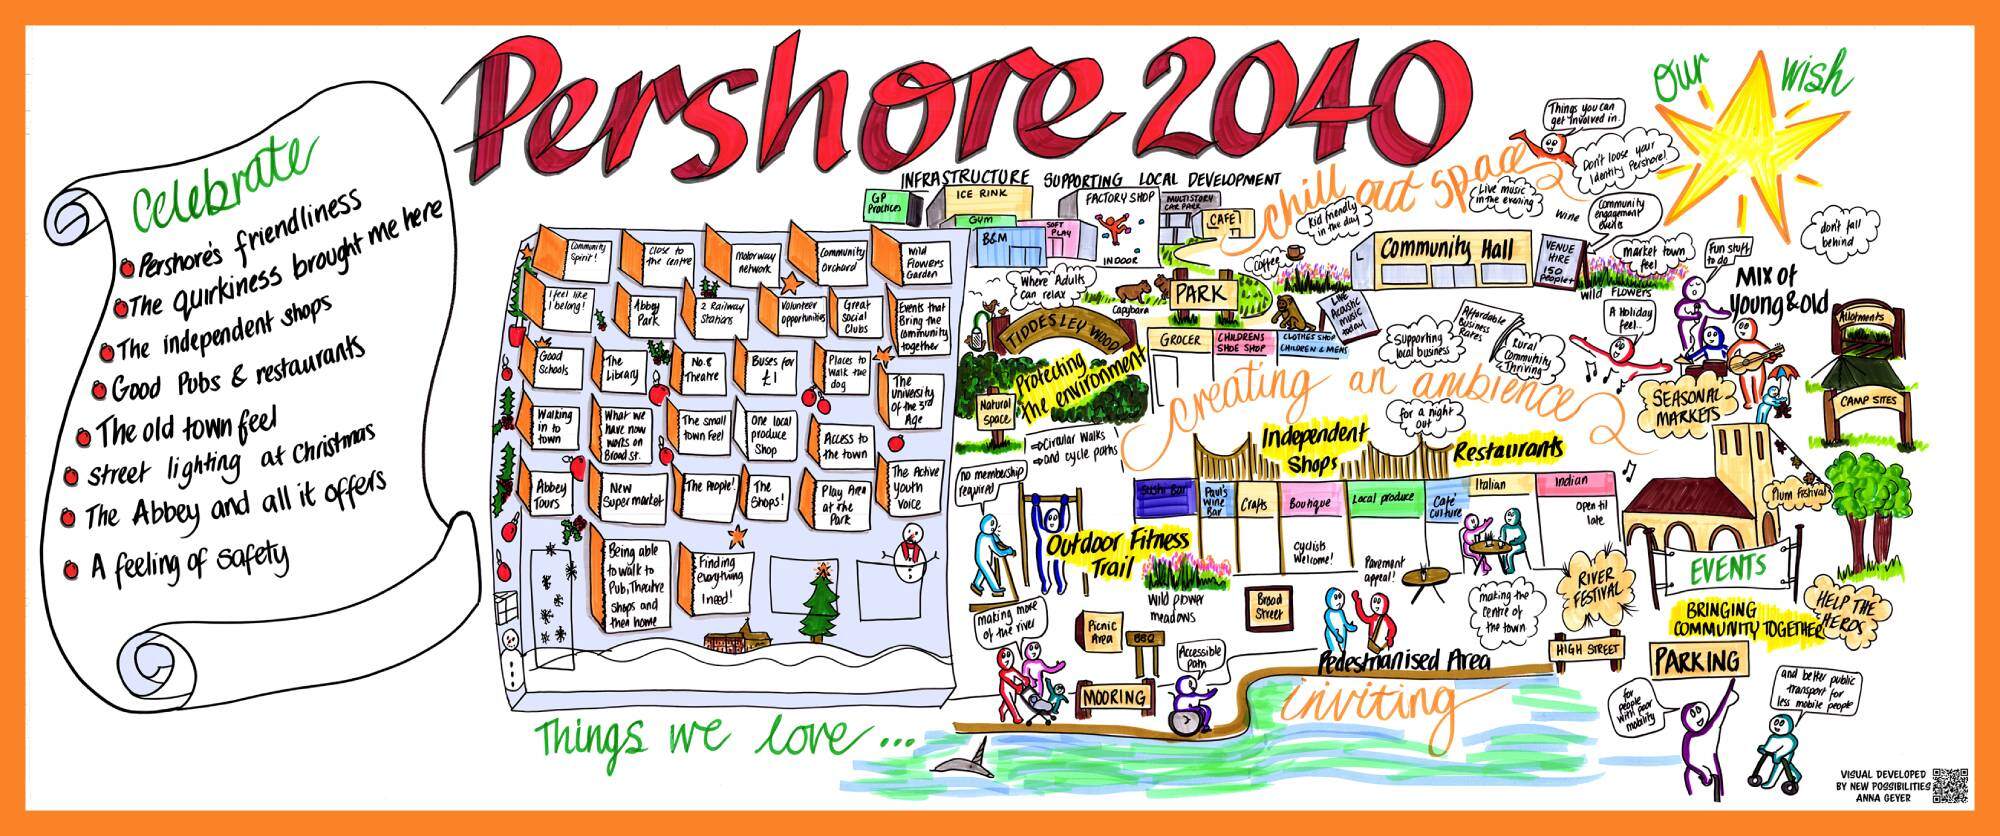 Pershore 2040
Celebrate
Pershore's friendliness
The quirkiness brought me here
The independent shops
Good Pubs & restaurants
The old town feel
street lighting at Christmas
The Abbey and all it offers
A feeling of safety
Community
Spirit!
Close to
the centre
Motorway
network
Community
Orchard
Wild
Flowers
Garden
I feel like
I belong!
Abbey
Park
2 Railway
Stations
Volunteer
opportunities
Great
Social
Clubs
Events that
Bring the
Community
together
Good
Schools
The
Library
No.8
Theatre
Buses for
£1
Places to
Walk the
dog
The
University
of the 3rd
Age
Walking
in to
town
What we
have now
works on
Broad St.
The small
town Feel
One local
produce
Shop
Access to
the town
Abbey
Tours
New
Supermarket
The People!
The
Shops!
Play Area
at the
Park
The Active
Youth
Voice
Being able
to walk to
Pub, Theatre
Shops and
then home
Finding
everything
I need!
Things we love...
INFRASTRUCTURE SUPPORTING LOCAL DEVELOPMENT
GP
Practices
ICE RINK
Gym
B&M
SOFT
PLAY
FACTORY SHOP
INDOOR
MULTISTORY
CAR PARK
CAFE
chill out space
Things you can
get involved in..
Don't loose your
Identity Pershore!
Live music
in the evening
Kid friendly
in the day
Wine
Community
engagement
events
Coffee
Community Hall
VENUE
HIRE
150
People+
market town
feel
Wild Flowers
Our wish
don't fall
behind
Fun stuff
to do
MIX of
Young & old
A Holiday
feel...
Where Adults
can relax
Capybara
PARK
LIVE
Acoustic
music
today
TIDDESLEY WOOD
Protecting
the environment
Natural
Space
⇒Circular Walks
⇒and cycle paths
GROCER
CHILDRENS
SHOE SHOP
CLOTHES SHOP
CHILDREN & MENS
Supporting
local business
Affordable
Business
Rates
Rural
Community
Thriving
creating an ambience
SEASONAL
MARKETS
Allotments
CAMP SITES
for a night
out
Independent
Shops
Restaurants
Sushi Bar
Paul's
Wine
Bar
Crafts
Boutique
Local produce
Café
Culture
Italian
Indian
open til
late
Cyclists
Welcome!
Pavement
appeal!
no membership
required
Outdoor Fitness
Trail
Wild flower
meadows
Plum Festival
EVENTS
BRINGING
COMMUNITY TOGETHER
HELP THE
HEROS
RIVER
FESTIVAL
making the
centre of
the town
Broad
Street
HIGH STREET
Pedestrianised Area
making more
of the river
Picnic
Area
BBQ
Accessible
path
MOORING
inviting
PARKING
for
people
with poor
mobility
and better public
transport for
less mobile people
VISUAL DEVELOPED
BY NEW POSSIBILITIES
ANNA GEYER